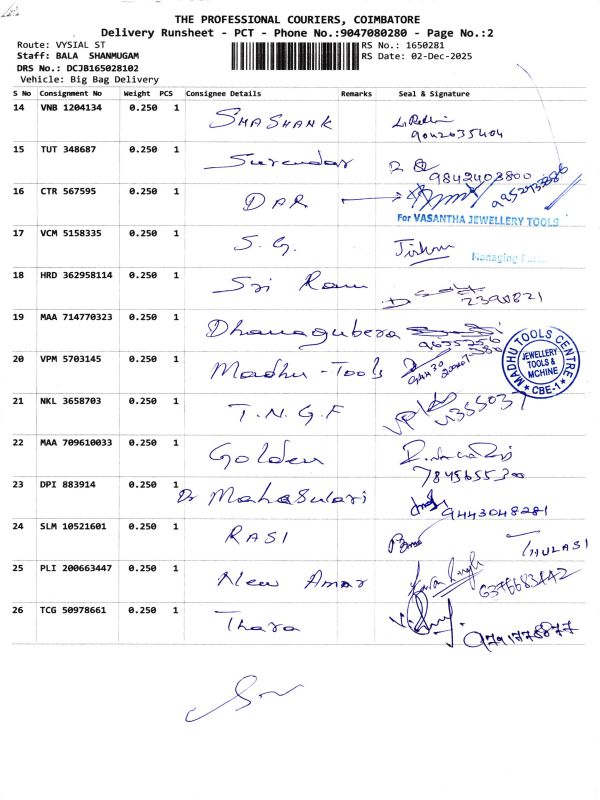 THE PROFESSIONAL COURIERS, COIMBATORE
Delivery Runsheet - PCT - Phone No.:9047080280 - Page No.:2
Route: VYSIAL ST
RS No.: 1650281
Staff: BALA SHANMUGAM
RS Date: 02-Dec-2025
DRS No.: DCJB165028102
Vehicle: Big Bag Delivery
S No Consignment No Weight PCS Consignee Details Remarks Seal & Signature
14 VNB 1204134 0.250 1 SHASHANK
9042035404
15 TUT 348687 0.250 1 Surendar
9842403800
16 CTR 567595 0.250 1 DAR
For VASANTHA JEWELLERY TOOLS
17 VCM 5158335 0.250 1 S.G.
Managing
18 HRD 362958114 0.250 1 Sri Ram
2390821
19 MAA 714770323 0.250 1 Dhanagubera
20 VPM 5703145 0.250 1 Madhu-Tools
MADHU TOOLS CENTRE
JEWELLERY
TOOLS &
MCHINE
CBE-1
21 NKL 3658703 0.250 1 T.N.G.F
22 MAA 709610033 0.250 1 Golden
7845655300
23 DPI 883914 0.250 1 Dr Mahasulari
9443048281
24 SLM 10521601 0.250 1 RASI
THULASI
25 PLI 200663447 0.250 1 New Amar
6376683442
26 TCG 50978661 0.250 1 Thara
9791778877